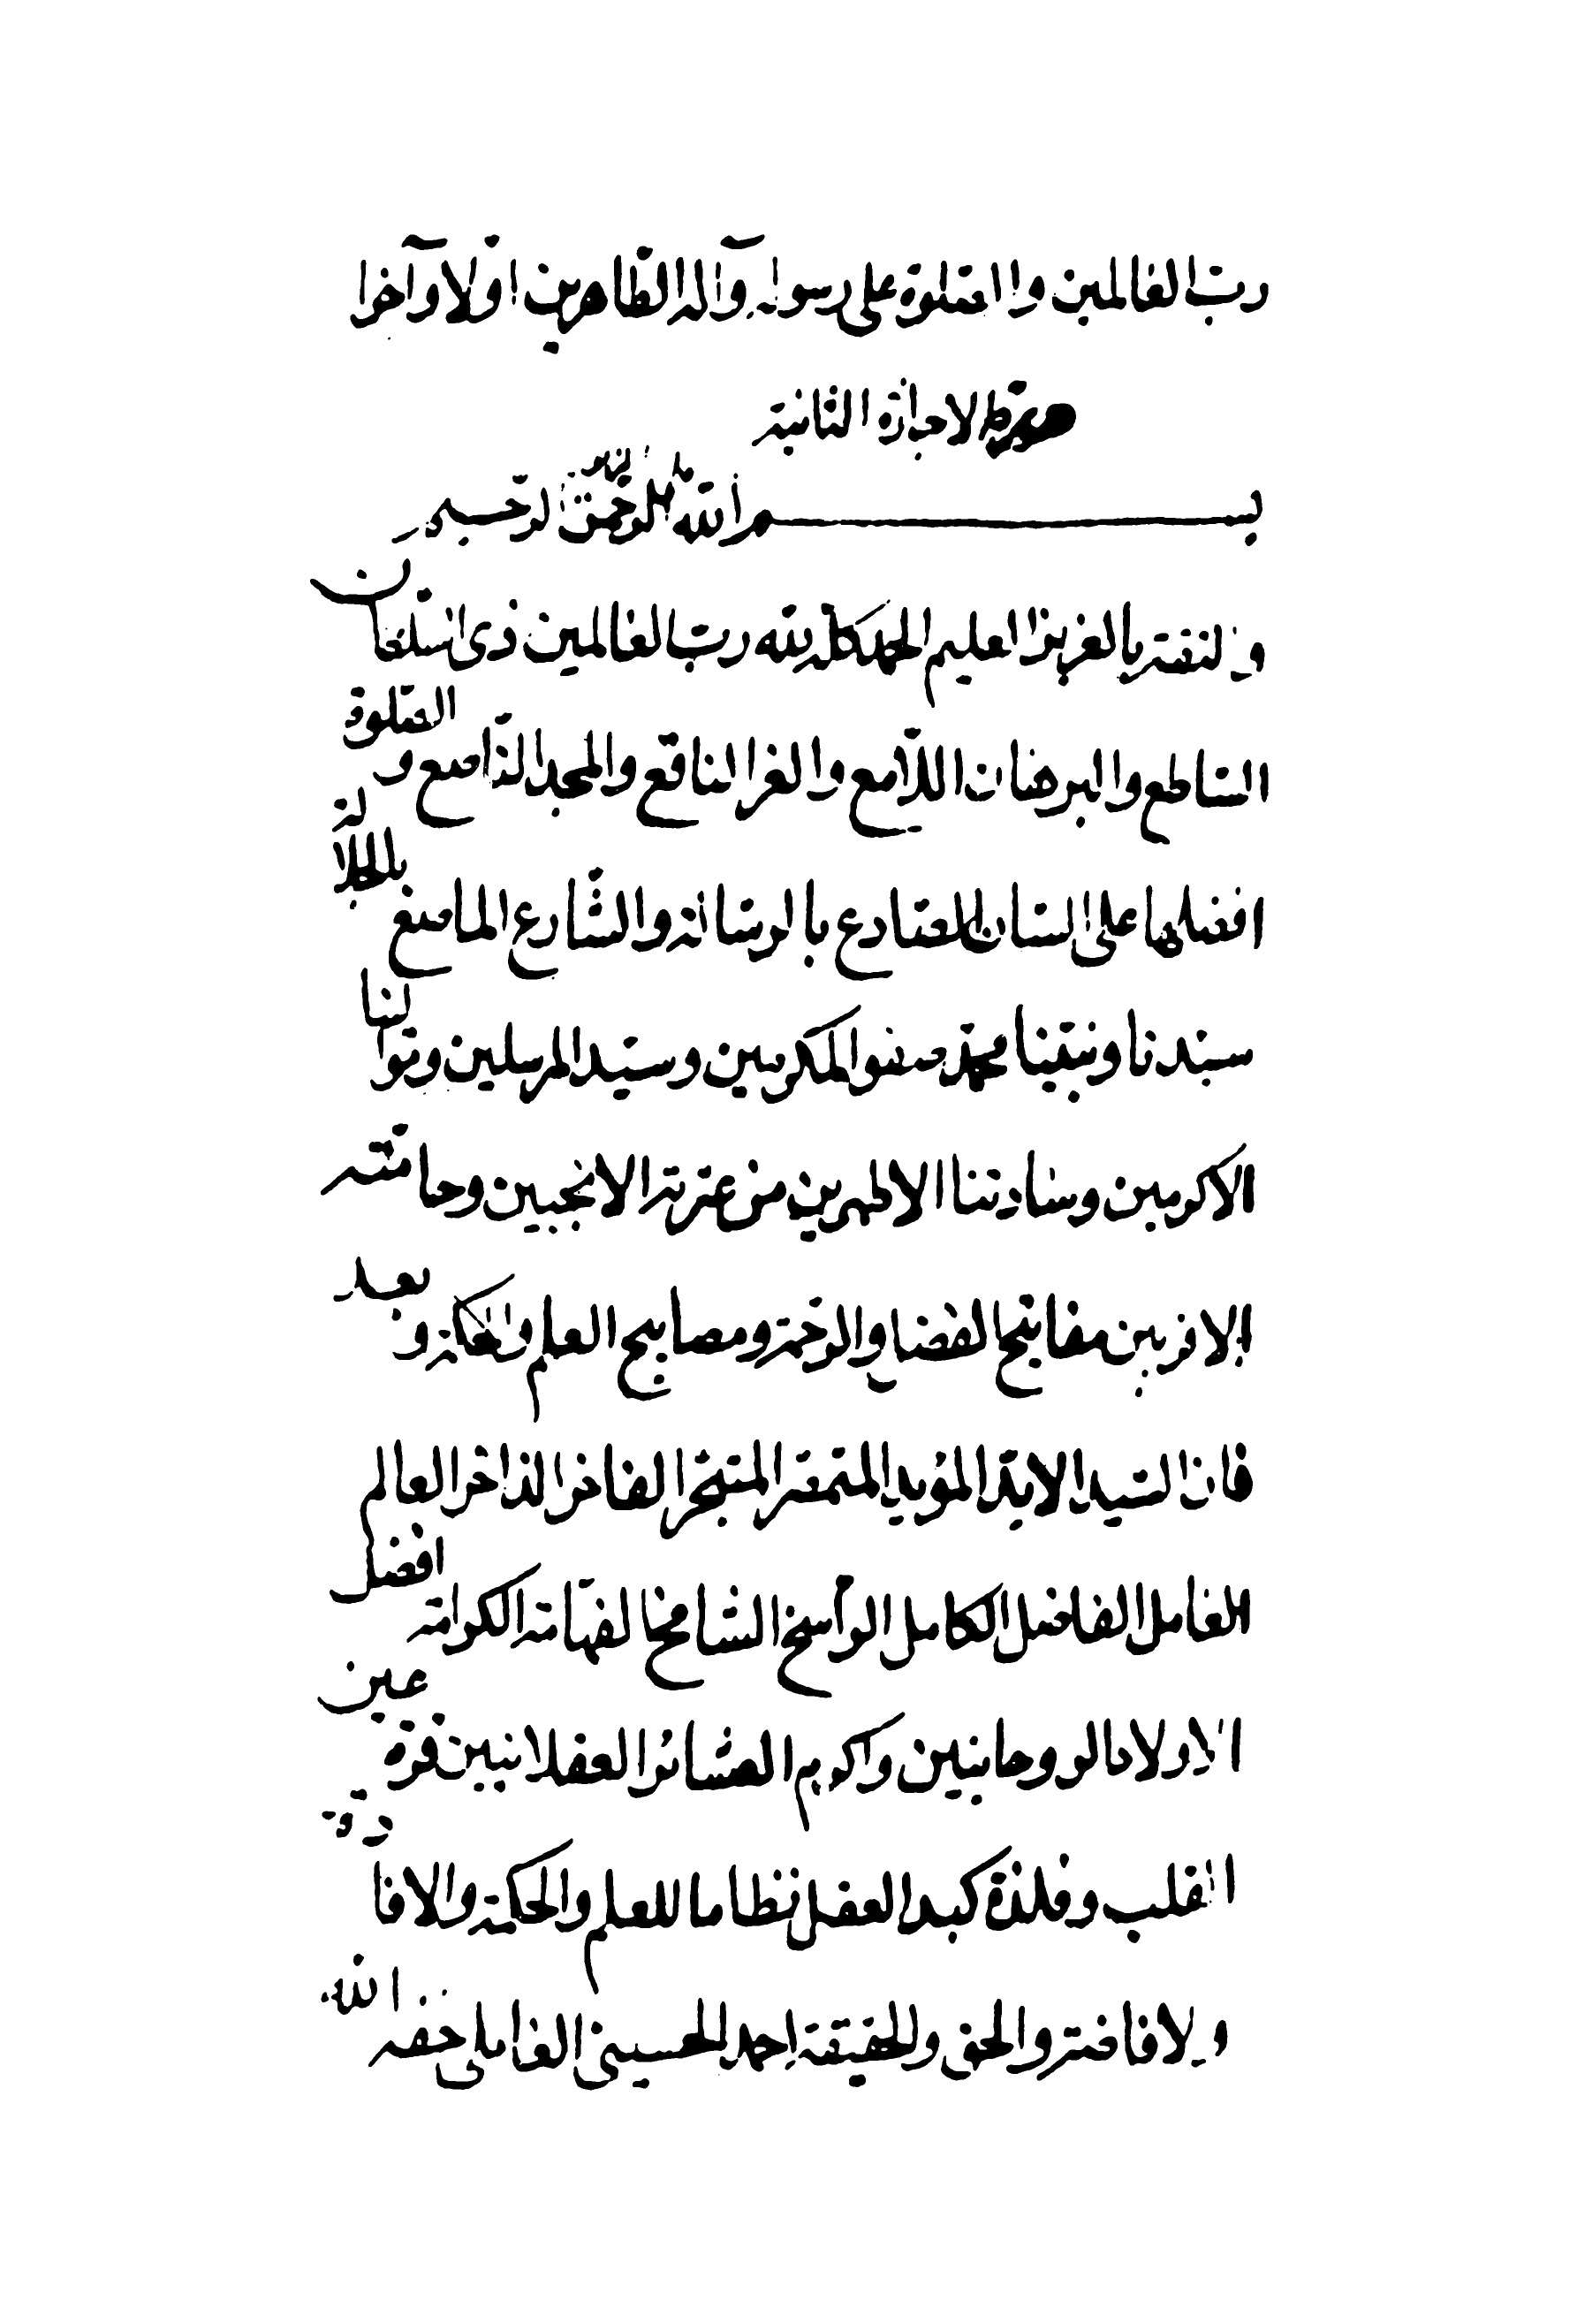 رب العالمين والصلوة على رسوله وآله الطاهرين اولا وآخرا
صورة الاجازة الثانية
بسم الله الرحمن الرحيم
والثقة بالعزيز العليم الحمد كله لله رب العالمين ذى السلطان
الساطع والبرهان اللامع والعز الناقع والمجد الناصع والصلوة
افضلها على السان الصادع بالرسالة والشارع الماصع
سيدنا ونبينا محمد صفو المكرمين وسيد المرسلين وموالينا
الاكرمين وسادتنا الاطهرين من عترته الانجبين وحامته
الاقربين مفاتيح الفضل والرحمة ومصابيح العلم والحكمة وبعد
فان السيد الايد المؤيد المتمهر المتبحر الفاخر الذاخر العالم
العامل الفاضل الكامل الراسخ الشامخ الفهامة الكرامة افضل
الاولاد الروحانيين واكرم العشائر العقلانيين قرة عين
القلب وفلذة كبد العقل نظاما للعلم والحكمة والافادة
والافاضة والحق والحقيقة احمد الحسينى العاملى حفه الله